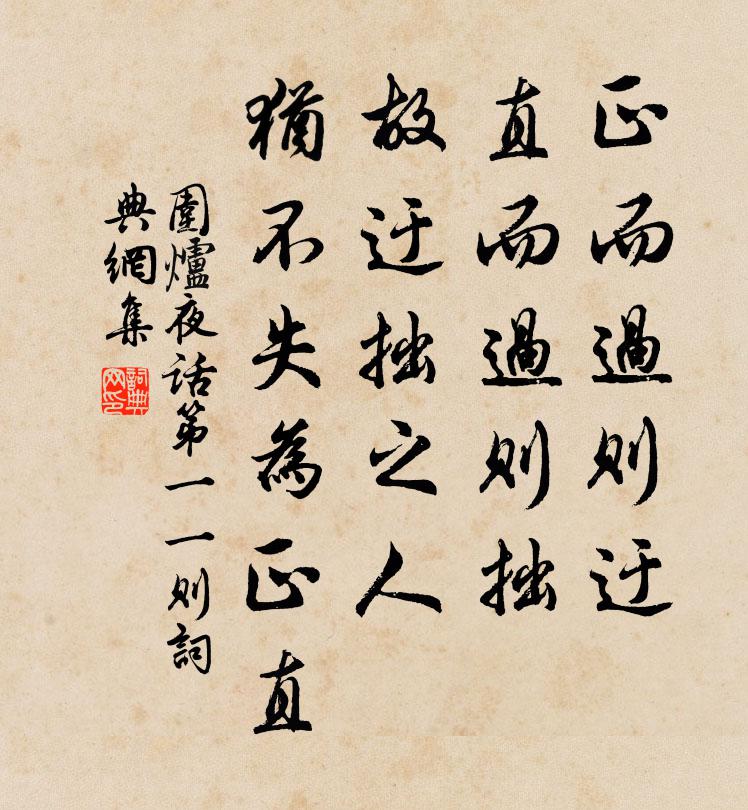 正而過則迂
直而過則拙
故迂拙之人
猶不失為正直
圍爐夜话第一一则詞
典網集
詞典
网印